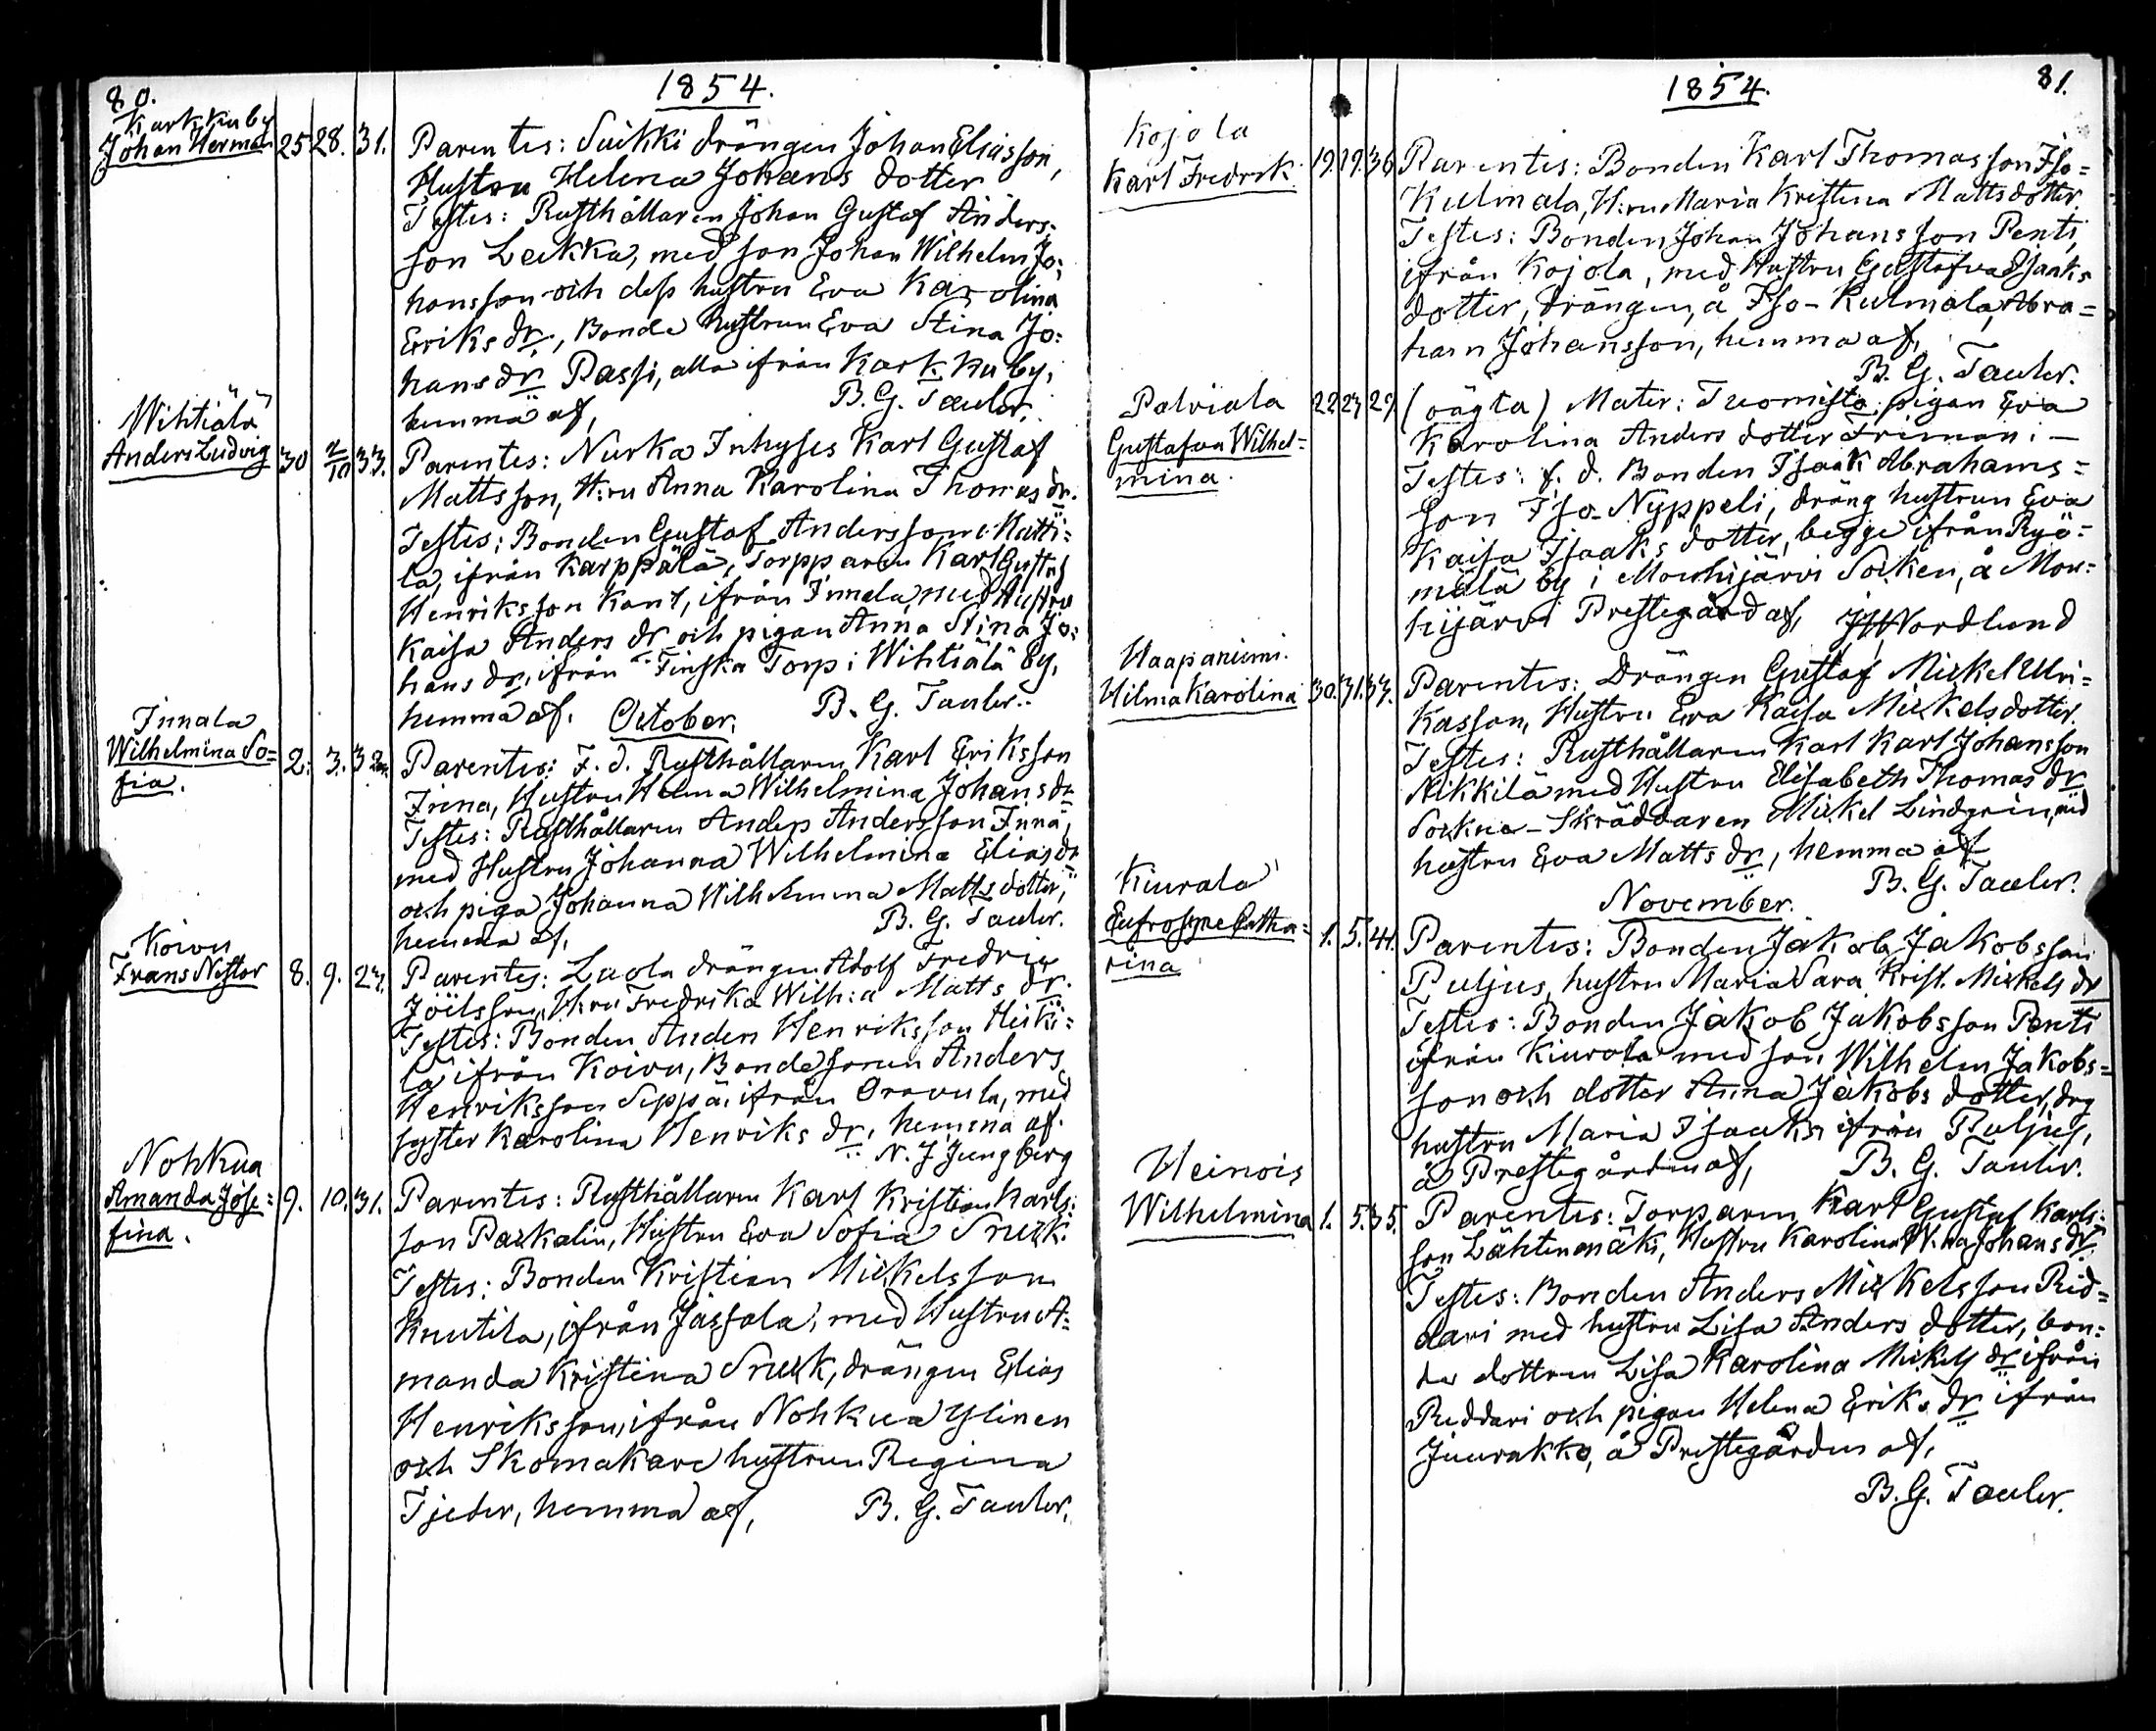 80.
1854.
Karkkuby
Johan Herman 25 28. 31. Parentes: Suikki drängen Johan Eliasson,
Hustru Helena Johans dotter
Testes: Rusthållaren Johan Gustaf Anders-
son Leckka, med son Johan Wilhelm Jo-
hansson och dess hustru Eva Karolina
Eriks dr, Bonde hustrun Eva Stina Jo-
hans dr Passi, alla ifrån Karkkuby,
hemma af, B. G. Tauler.
Wihtiälä
Anders Ludvig 30 2/10 33. Parentes: Nurka Inhyses Karl Gustaf
Mattsson, H:ru Anna Karolina Thomas dr.
Testes; Bonden Gustaf Andersson Matti=
la, ifrån Karppälä, Torpparen Karl Gustaf
Henriksson Kant, ifrån Innala, med Hustru
Kaisa Anders dr och pigan Anna Stina Jo-
hans dr, ifrån Finska Torp i Wihtiälä by,
hemma af. B. G. Tauler.
October.
Innala
Wilhelmina So=
fia. 2. 3. Parentes: F. d. Rusthållaren Karl Eriksson
Inna, Hustru Helena Wilhelmina Johans dr
Testes: Rusthållaren Anders Andersson Inna,
med Hustru Johanna Wilhelmina Elias dr
och piga Johanna Wilhelmina Matts dotter,
hemma af, B. G. Tauler.
Koivu
Frans Nestor 8. 9. 27. Parentes: Luola drängen Adolf Fredric
Joëlsson, H:ru Fredrika Wilh:a Matts dr.
Testes: Bonden Anders Henriksson Heiki=
lä ifrån Koivu, Bondesonen Anders
Henriksson Seppä, ifrån Oravula, med
syster Karolina Henriks dr, hemma af.
N. J Ljungberg
Nohkua
Amanda Jose=
fina. 9. 10. 31. Parentes: Rusthållaren Karl Kristian Karls-
son Paskalin, Hustru Eva Sofia Snäck.
Testes: Bonden Kristian Mickelsson
Knutila, ifrån Jassala, med Hustru A=
manda Kristina Snäck, drängen Elias
Henriksson, ifrån Nohkua Ylinen
och Skomakare hustrun Regina
Tjeder, hemma af, B. G. Tauler,
1854.
81.
Kojola
Karl Fredrik. 19. 19. 36 Parentes: Bonden Karl Thomasson Iso=
Kulmala, H:ru Maria Kristina Matts dotter.
Testes: Bonden Johan Johansson Penti,
ifrån Kojola, med Hustru Gustafva Isaaks
dotter, drängen, å Iso-Kulmala, Abra=
ham Johansson, hemma af,
B. G. Tauler.
Palviala
Gustafva Wilhel=
mina. 22 23 29 (oägta) Mater: Tuomisto pigan Eva
Karolina Anders dotter Friman: —
Testes: f. d. Bonden Isaak Abrahams=
son Iso-Nyppeli, dräng hustrun Eva
Kaisa Isaaks dotter, begge ifrån Ryö=
mälä by i Mouhijärvi Socken, å Mou=
hijärvi Prestegård af, Nordlund
Haapaniemi.
Hilma Karolina 30. 31. 33. Parentes: Drängen Gustaf Mickel Ulri=
kasson, Hustru Eva Kaisa Mickels dotter.
Testes: Rusthållaren Karl Karl Johansson
Nikkilä med Hustru Elisabeth Thomas dr
Sockne-Skräddaren Mickel Lindgrén, med
hustru Eva Matts dr, hemma af
B. G. Tauler.
November.
Kiurala
Eufrosyne Catha=
rina 1. 5. 41. Parentes: Bonden Jakob Jakobsson
Puljus, hustru Maria Sara Krist. Mickels dr
Testes: Bonden Jakob Jakobsson Penti
ifrån Kiurala med son Wilhelm Jakobs=
son och dotter Anna Jakobs dotter, drg
hustru Maria Isaaks, ifrån Puljus,
å Prestegården af, B. G. Tauler.
Heinois
Wilhelmina 1. 5. 35. Parentes: Torparen Karl Gustaf Karls-
son Lähtenmäki, Hustru Karolina W:na Johans dr.
Testes: Bonden Anders Mickelsson Rid=
dari med hustru Lisa Anders dotter, bon=
de dottren Lisa Karolina Mickels dr ifrån
Riddari och pigan Helena Eriks dr ifrån
Juurakko, å Prestegården af,
B. G. Tauler.